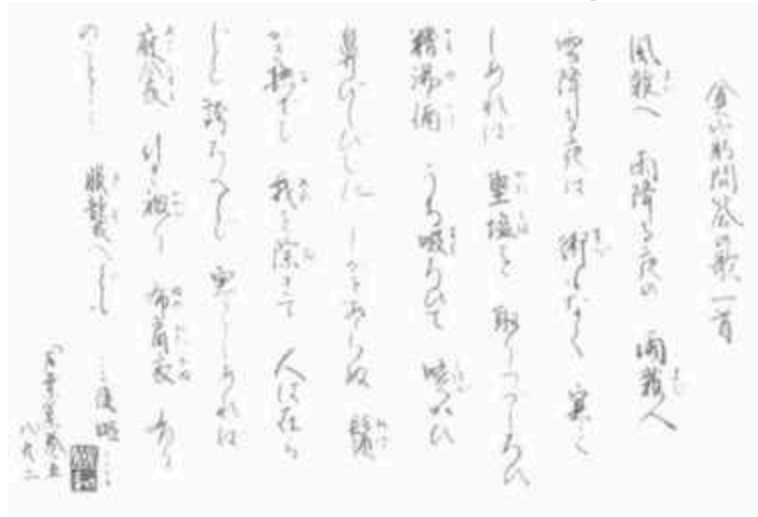 貧窮問答の歌一首
風雑へ 雨降る夜の 雨雑へ
雪降る夜は 術もなく 寒く
しあれば 堅塩を 取りつづしろひ
糟湯酒 うち啜ろひて 咳かひ
鼻びしびしに しかとあらぬ 鬚
かき撫でて 我を除きて 人は在ら
じと 誇ろへど 寒くしあれば
麻衾 引き被り 布肩衣 あり
のことごと 服襲へども …後略…
万葉集巻五
八九二